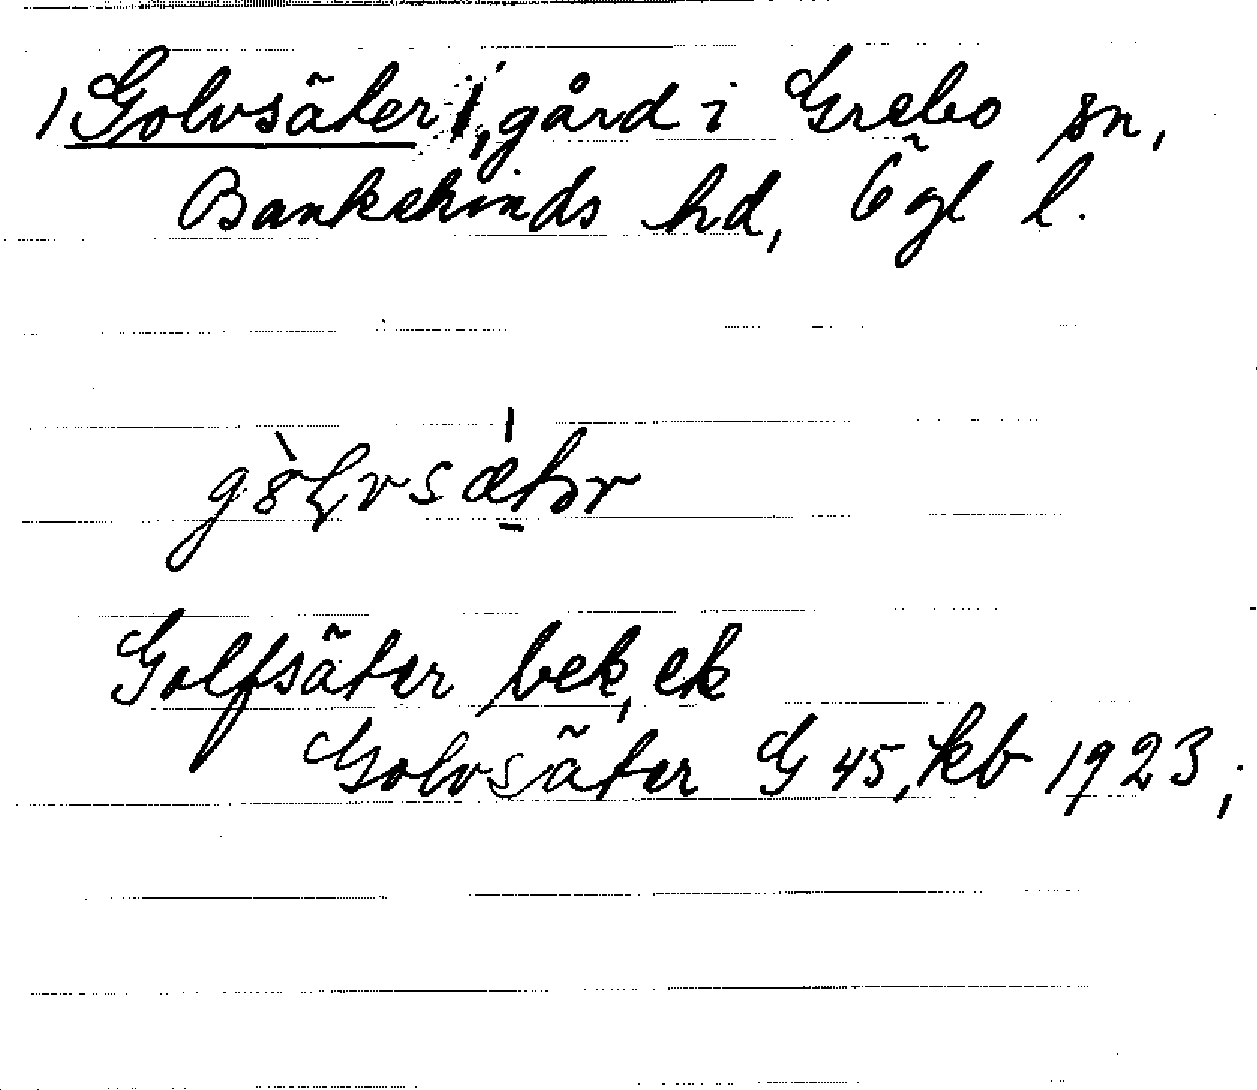 1) Golvsäter, gård i Grebo sn,
Bankekinds hd, Ögl l.
Golfsäter bek, ek
Golvsäter G 45, kb 1923;